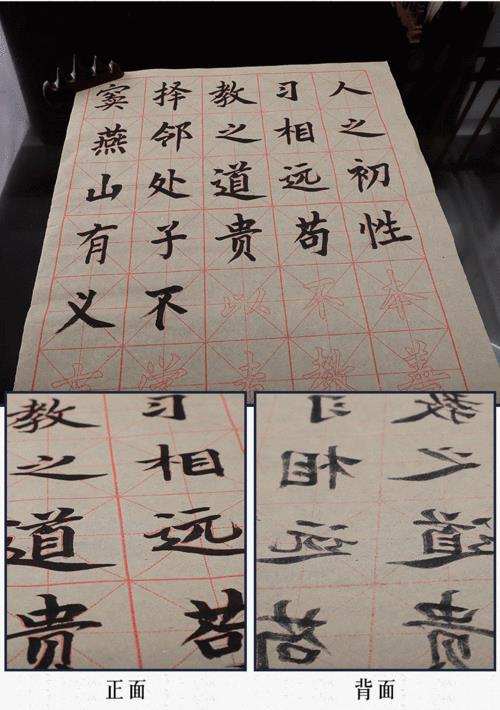 人之初性本善
习相远苟不教
教之道贵以
择邻处子不
窦燕山有义
习相远苟
教之道贵
正面
教之道贵
习相远苟
背面